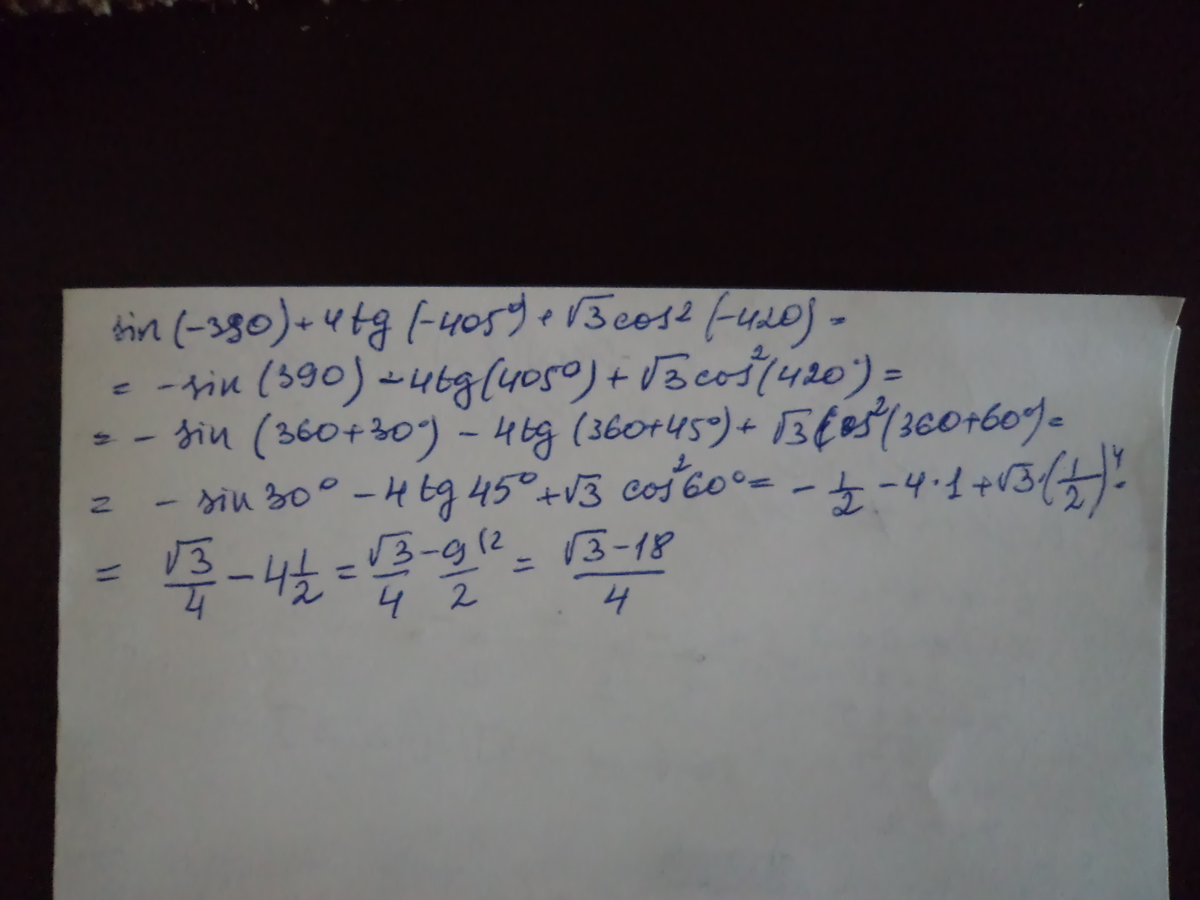 sin (-390) + 4tg (-405°) + √3 cos² (-420) =
= - sin (390) - 4tg (405°) + √3 cos² (420°) =
= - sin (360+30°) - 4tg (360+45°) + √3 cos² (360+60°) =
= - sin 30° - 4tg 45° + √3 cos² 60° = - 1/2 - 4·1 + √3·(1/2)⁴ =
= √3/4 - 4 1/2 = √3/4 - 9/2 (2 = (√3-18)/4